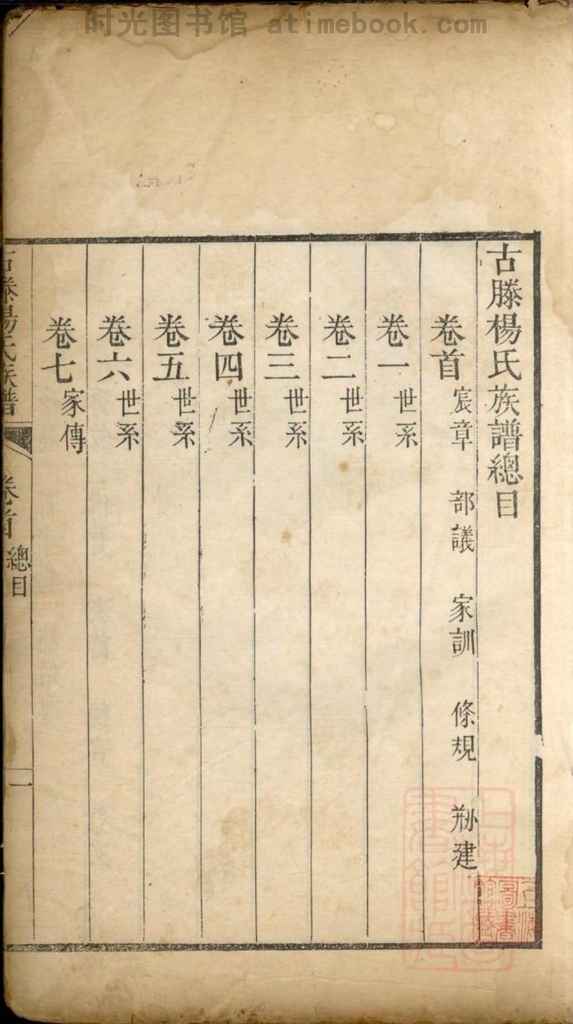 时光图书馆 atimebook.com
古滕楊氏族譜總目
卷首 宸章 部議 家訓 條規 刱建
卷一 世系
卷二 世系
卷三 世系
卷四 世系
卷五 世系
卷六 世系
卷七 家傳
古滕楊氏族譜 卷首 總目 一